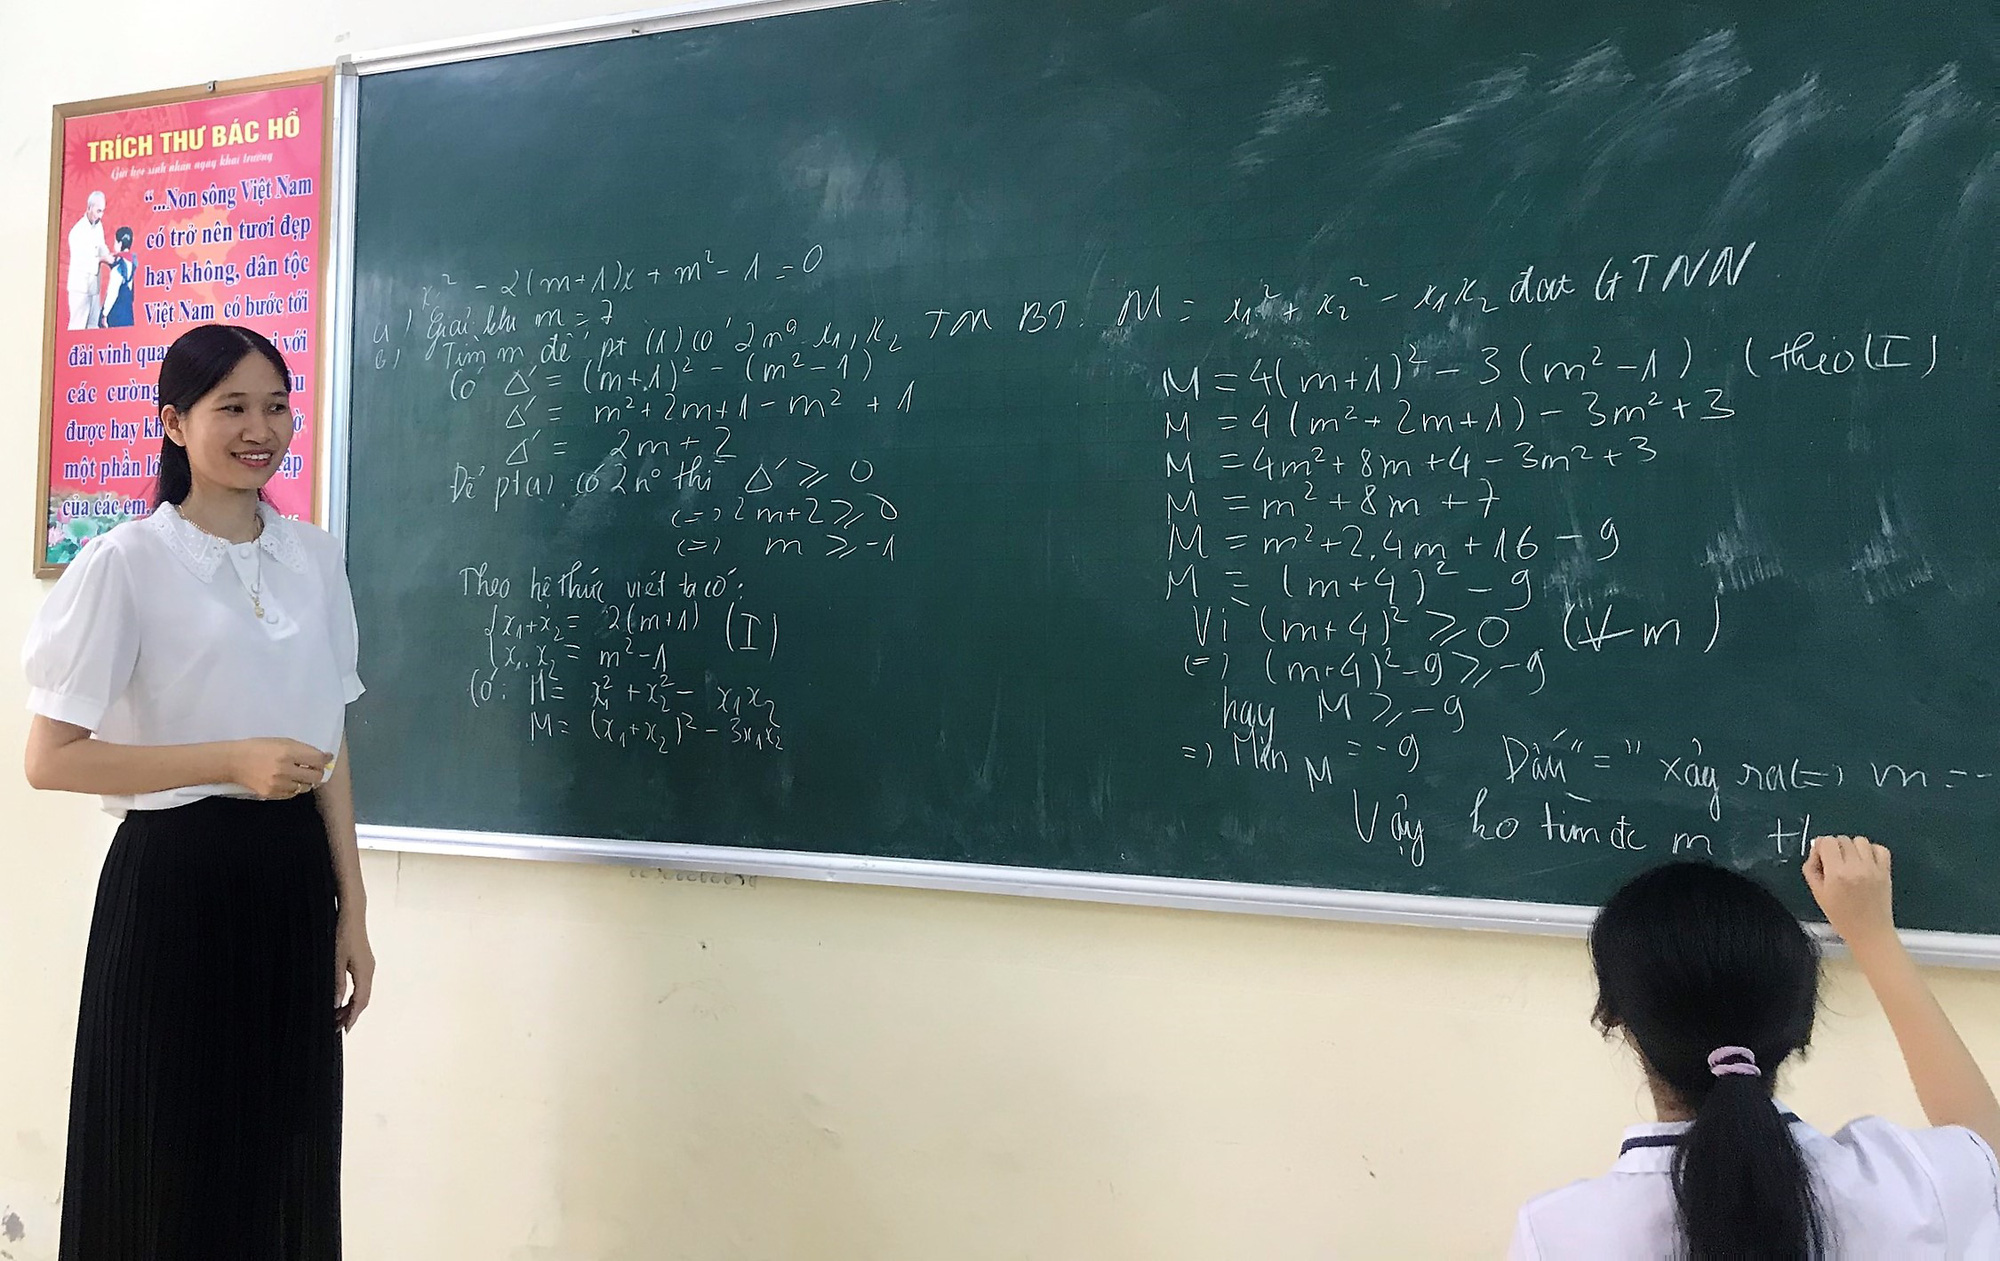 TRÍCH THƯ BÁC HỒ
Gửi học sinh nhân ngày khai trường
“...Non sông Việt Nam
có trở nên tươi đẹp
hay không, dân tộc
Việt Nam có bước tới
đài vinh qua với
các cường
được hay kh
một phần lớ ập
của các em.
x² - 2(m+1)x + m² - 1 = 0
a) Giải khi m = 7
b) Tìm m để pt (1) có 2 n° x₁, x₂ TM BT: M = x₁² + x₂² - x₁x₂ đạt GTNN
Có Δ' = (m+1)² - (m² - 1)
Δ' = m² + 2m + 1 - m² + 1
Δ' = 2m + 2
Để pt(1) có 2 n° thì Δ' ⩾ 0
(=) 2m+2 ⩾ 0
(=) m ⩾ -1
Theo hệ thức viét ta có:
{x₁+x₂ = 2(m+1) (I)
x₁.x₂ = m² - 1
Có: M = x₁² + x₂² - x₁x₂
M = (x₁+x₂)² - 3x₁x₂
M = 4(m+1)² - 3(m² - 1) (theo (I)
M = 4(m² + 2m + 1) - 3m² + 3
M = 4m² + 8m + 4 - 3m² + 3
M = m² + 8m + 7
M = m² + 2.4m + 16 - 9
M = (m+4)² - 9
Vì (m+4)² ⩾ 0 (∀m)
(=) (m+4)² - 9 ⩾ -9
hay M ⩾ -9
=) Min M = -9 Dấu "=" xảy ra (=) m = -
Vậy ko tìm đc m th